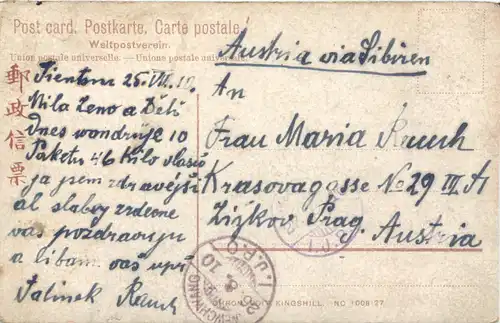 Post card. Postkarte. Carte postale.
Weltpostverein.
Union postale universelle. — Unione postale universale.
郵政信票
Tientsin 25.VII.10.
Milá ženo a Děti
Dnes wandruje 10
Paketu 46 Kilo vlasů
ja jsem zdravějši
al slabey srdečne
vas pozdravuju
a libam vas
Tatinek Rauch
Austria via Sibiren
An
Frau Maria Rauch
Krasovagasse No 29 III. St
Žižkov Prag
Austria
I.J.P.O.
NEWCHWANG
KINGSHILL. NO 1008-27